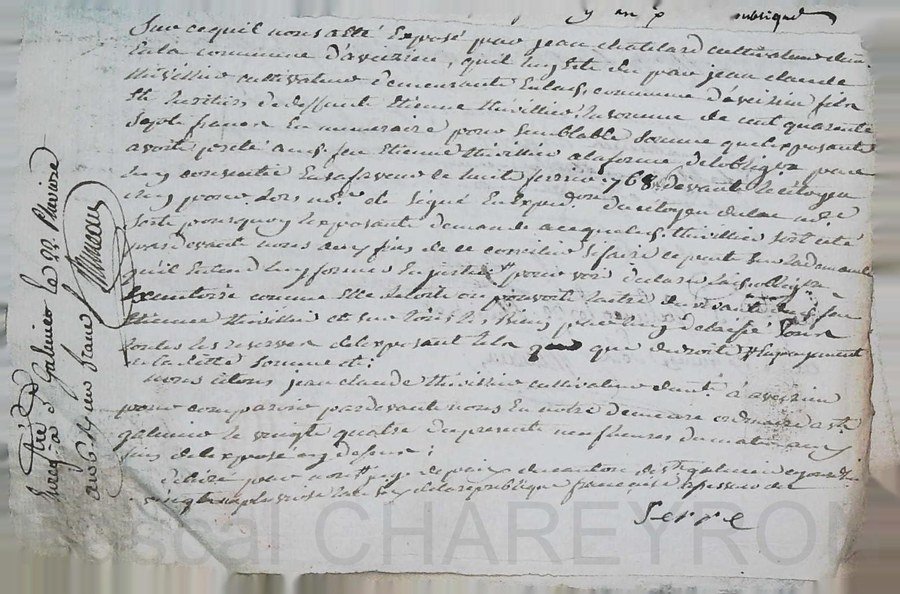 Sur ce quil nous a été Exposé par jean chatelard cultivateur dem.t
En la commune d'aveizieu, quil luy été du par jean claude
thivillier cultivateur demeurant En lad. commune d'aveizieu fils
et heritier de deffunt Etienne thivillier la somme de cent quarante
sept francs En numeraire pour semblable somme que lexposant
avoit preté aud. feu Etienne thivillier a la forme de lobligon
luy consentie En sa faveur le huit fevrier 1768 devant le citoyen
et signé En Expedon du citoyen dulac nre
pourquoy lexposant demande a ce que led. thivillier soit cité
pardevant nous aux fins de se concilier si faire ce peut sur la demande
qu'il Entend luy former En justice pour voir declarer lad. obligon
Executoire comme Elle Letoit ou pouvoit l'estre de vivant dud. feu
Etienne thivillier et sur tous les biens par luy delaissé sous
toutes les reserves de lexposant tels que de droit & le payement
de la ditte somme &c:
nous citons jean claude thivillier cultivateur demt. à aveizieu
pour comparoir pardevant nous En notre demeure ordinaire a st
galmier le vingt quatre du present neuf heures du matin aux
fins de lexposé cy dessus;
delivré par nous juge de paix du canton de st galmier ce jourdhui
de la republique française
Serre
Enreg.é a S. Galmier le 22 Pluviose
an 6 Rçu un franc
Pascal CHAREYRON